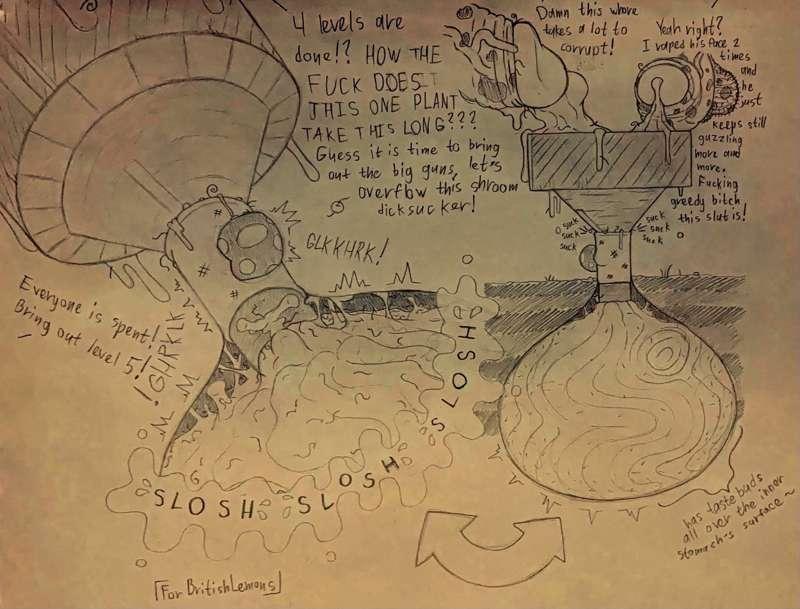 4 levels are
done!? HOW THE
FUCK DOES
THIS ONE PLANT
TAKE THIS LONG???
Guess it is time to bring
out the big guns, let's
overflow this shroom
dicksucker!
Damn this whore
takes a lot to
corrupt!
Yeah right?
I raped his face 2
times
and
he
just
keeps still
guzzling
more and
more.
Fucking
greedy bitch
this slut is!
suck
suck
suck
suck
suck
suck
GLKKHRK!
Everyone is spent!
Bring out level 5!
GHRKLK!
SLOSH SLOSH SLOSH
has taste buds
all over the inner
stomach's surface~
[For BritishLemons]